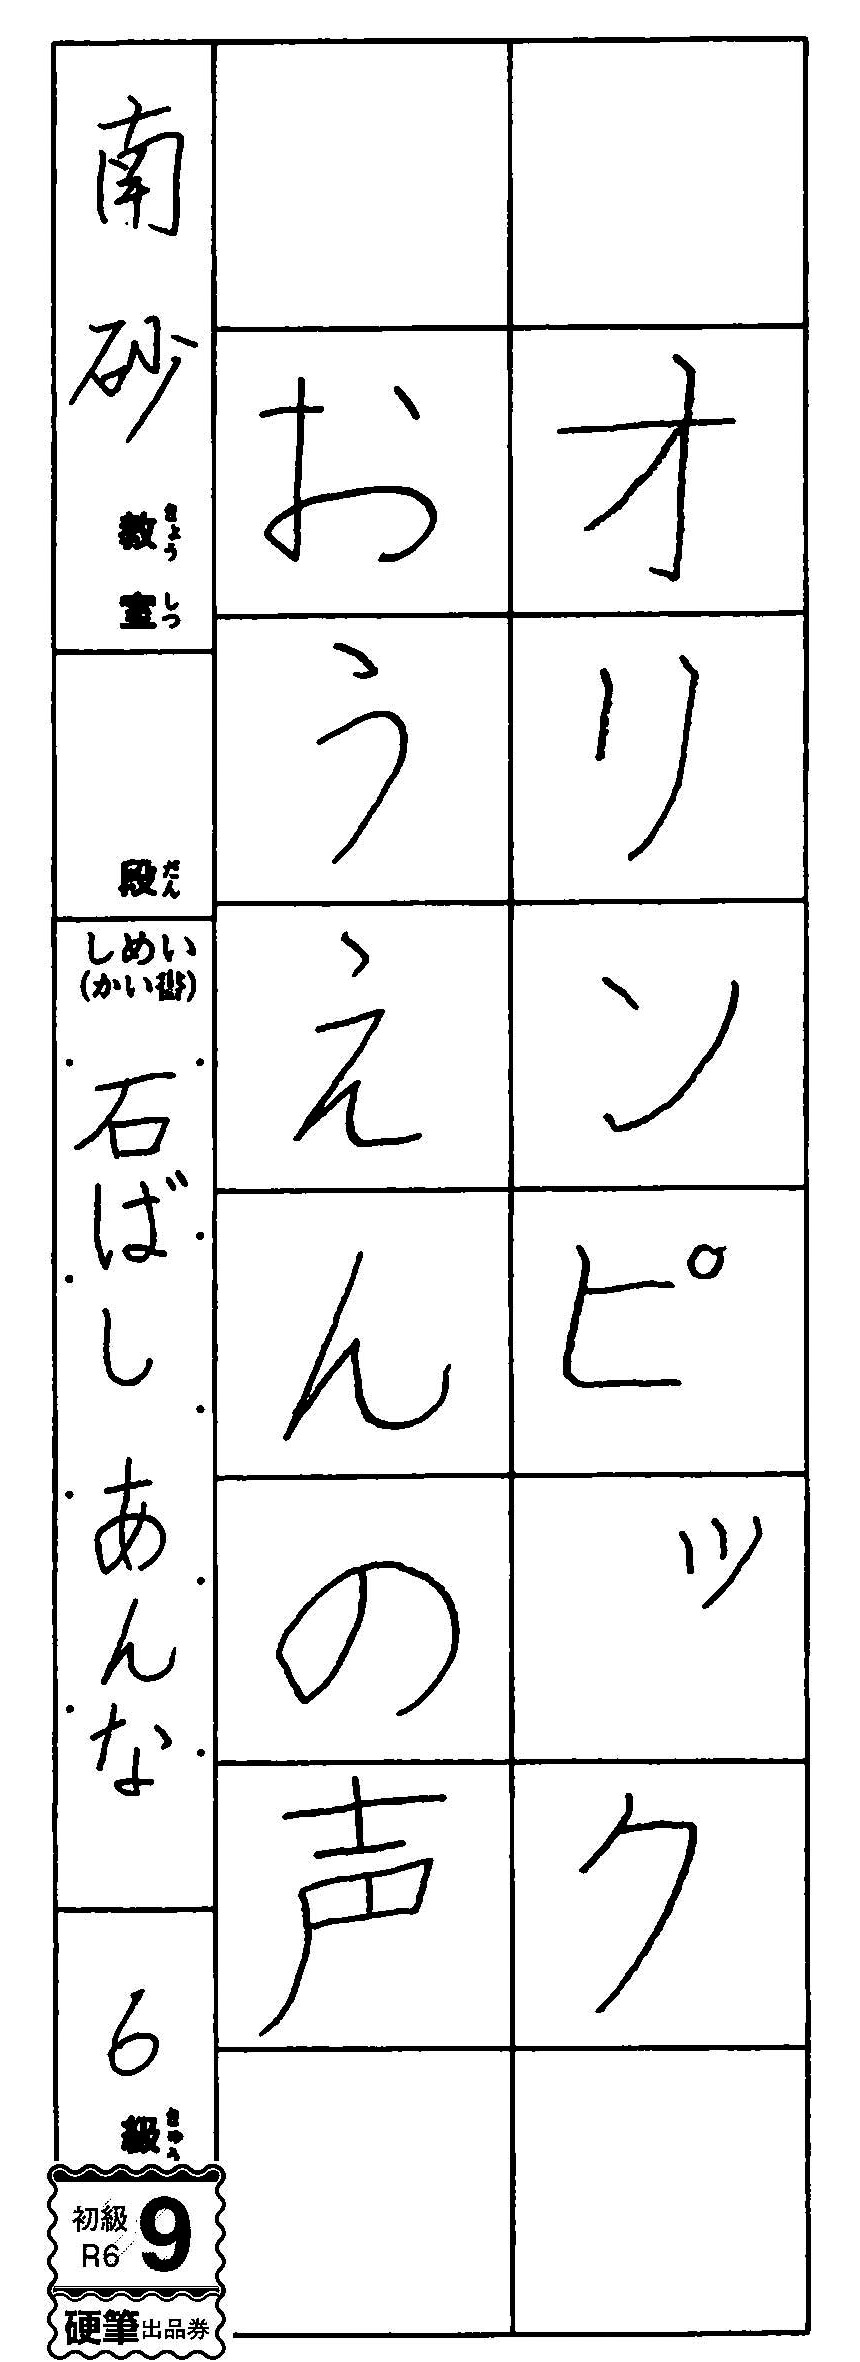 オリンピック
おうえんの声
南砂教室
きょうしつ
段
だん
しめい
(かい書)
石ばし あんな
6級
きゅう
初級
R6
9
硬筆出品券